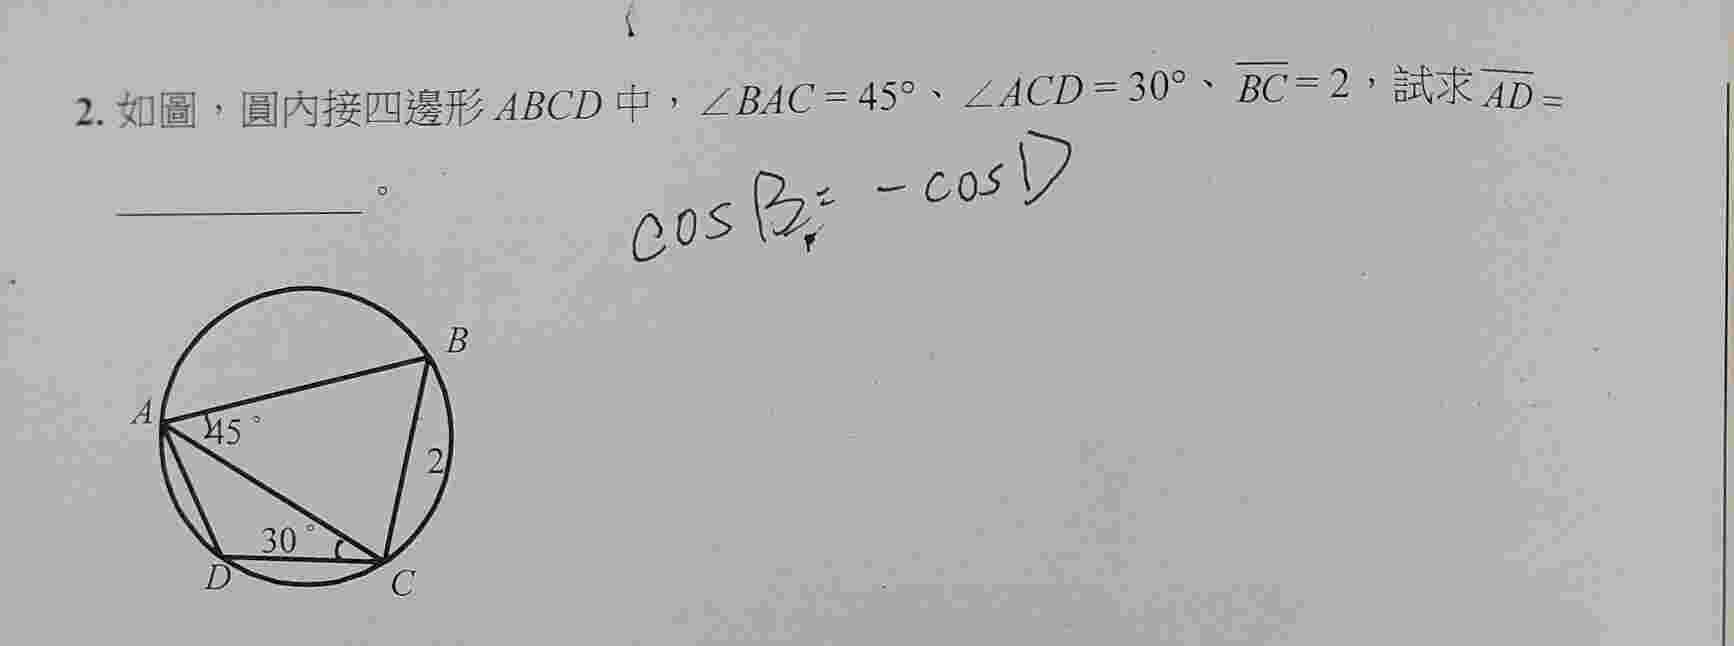 2. 如圖，圓內接四邊形 ABCD 中，∠BAC = 45°、∠ACD = 30°、BC = 2，試求 AD =
______。
cos B = - cos D
B
A
45°
2
30°
D
C